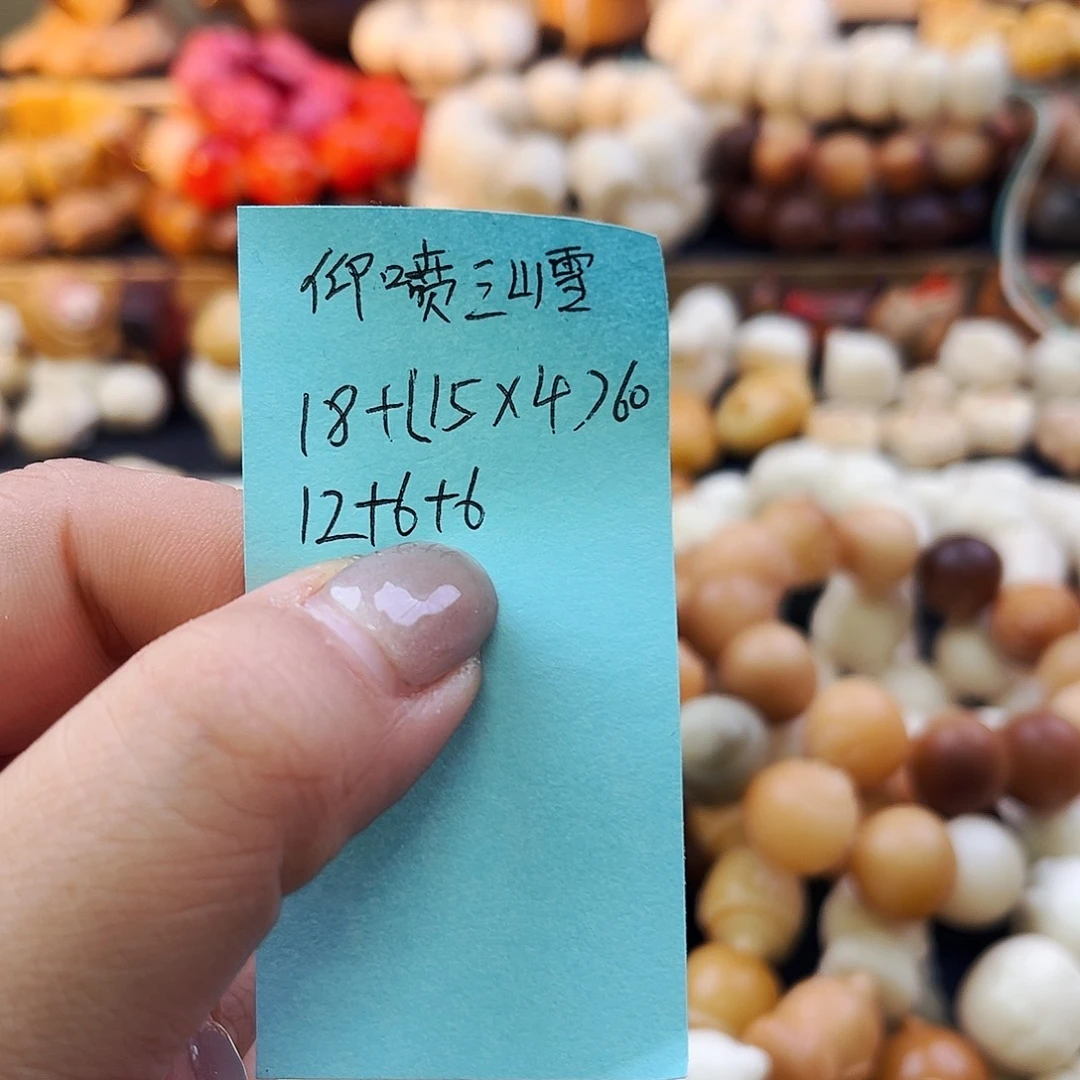 仰喷三山雪
18+(15×4)60
12+6+6